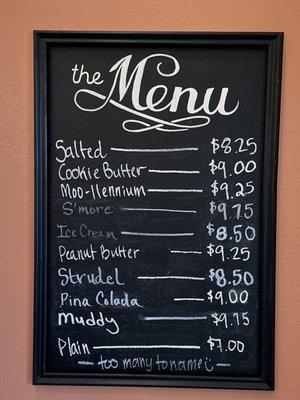 the Menu
Salted $8.25
Cookie Butter $9.00
Moo-llennium $9.25
S'more $9.75
Ice Cream $8.50
Peanut Butter $9.25
Strudel $8.50
Pina Colada $9.00
Muddy $9.75
Plain $7.00
too many to name